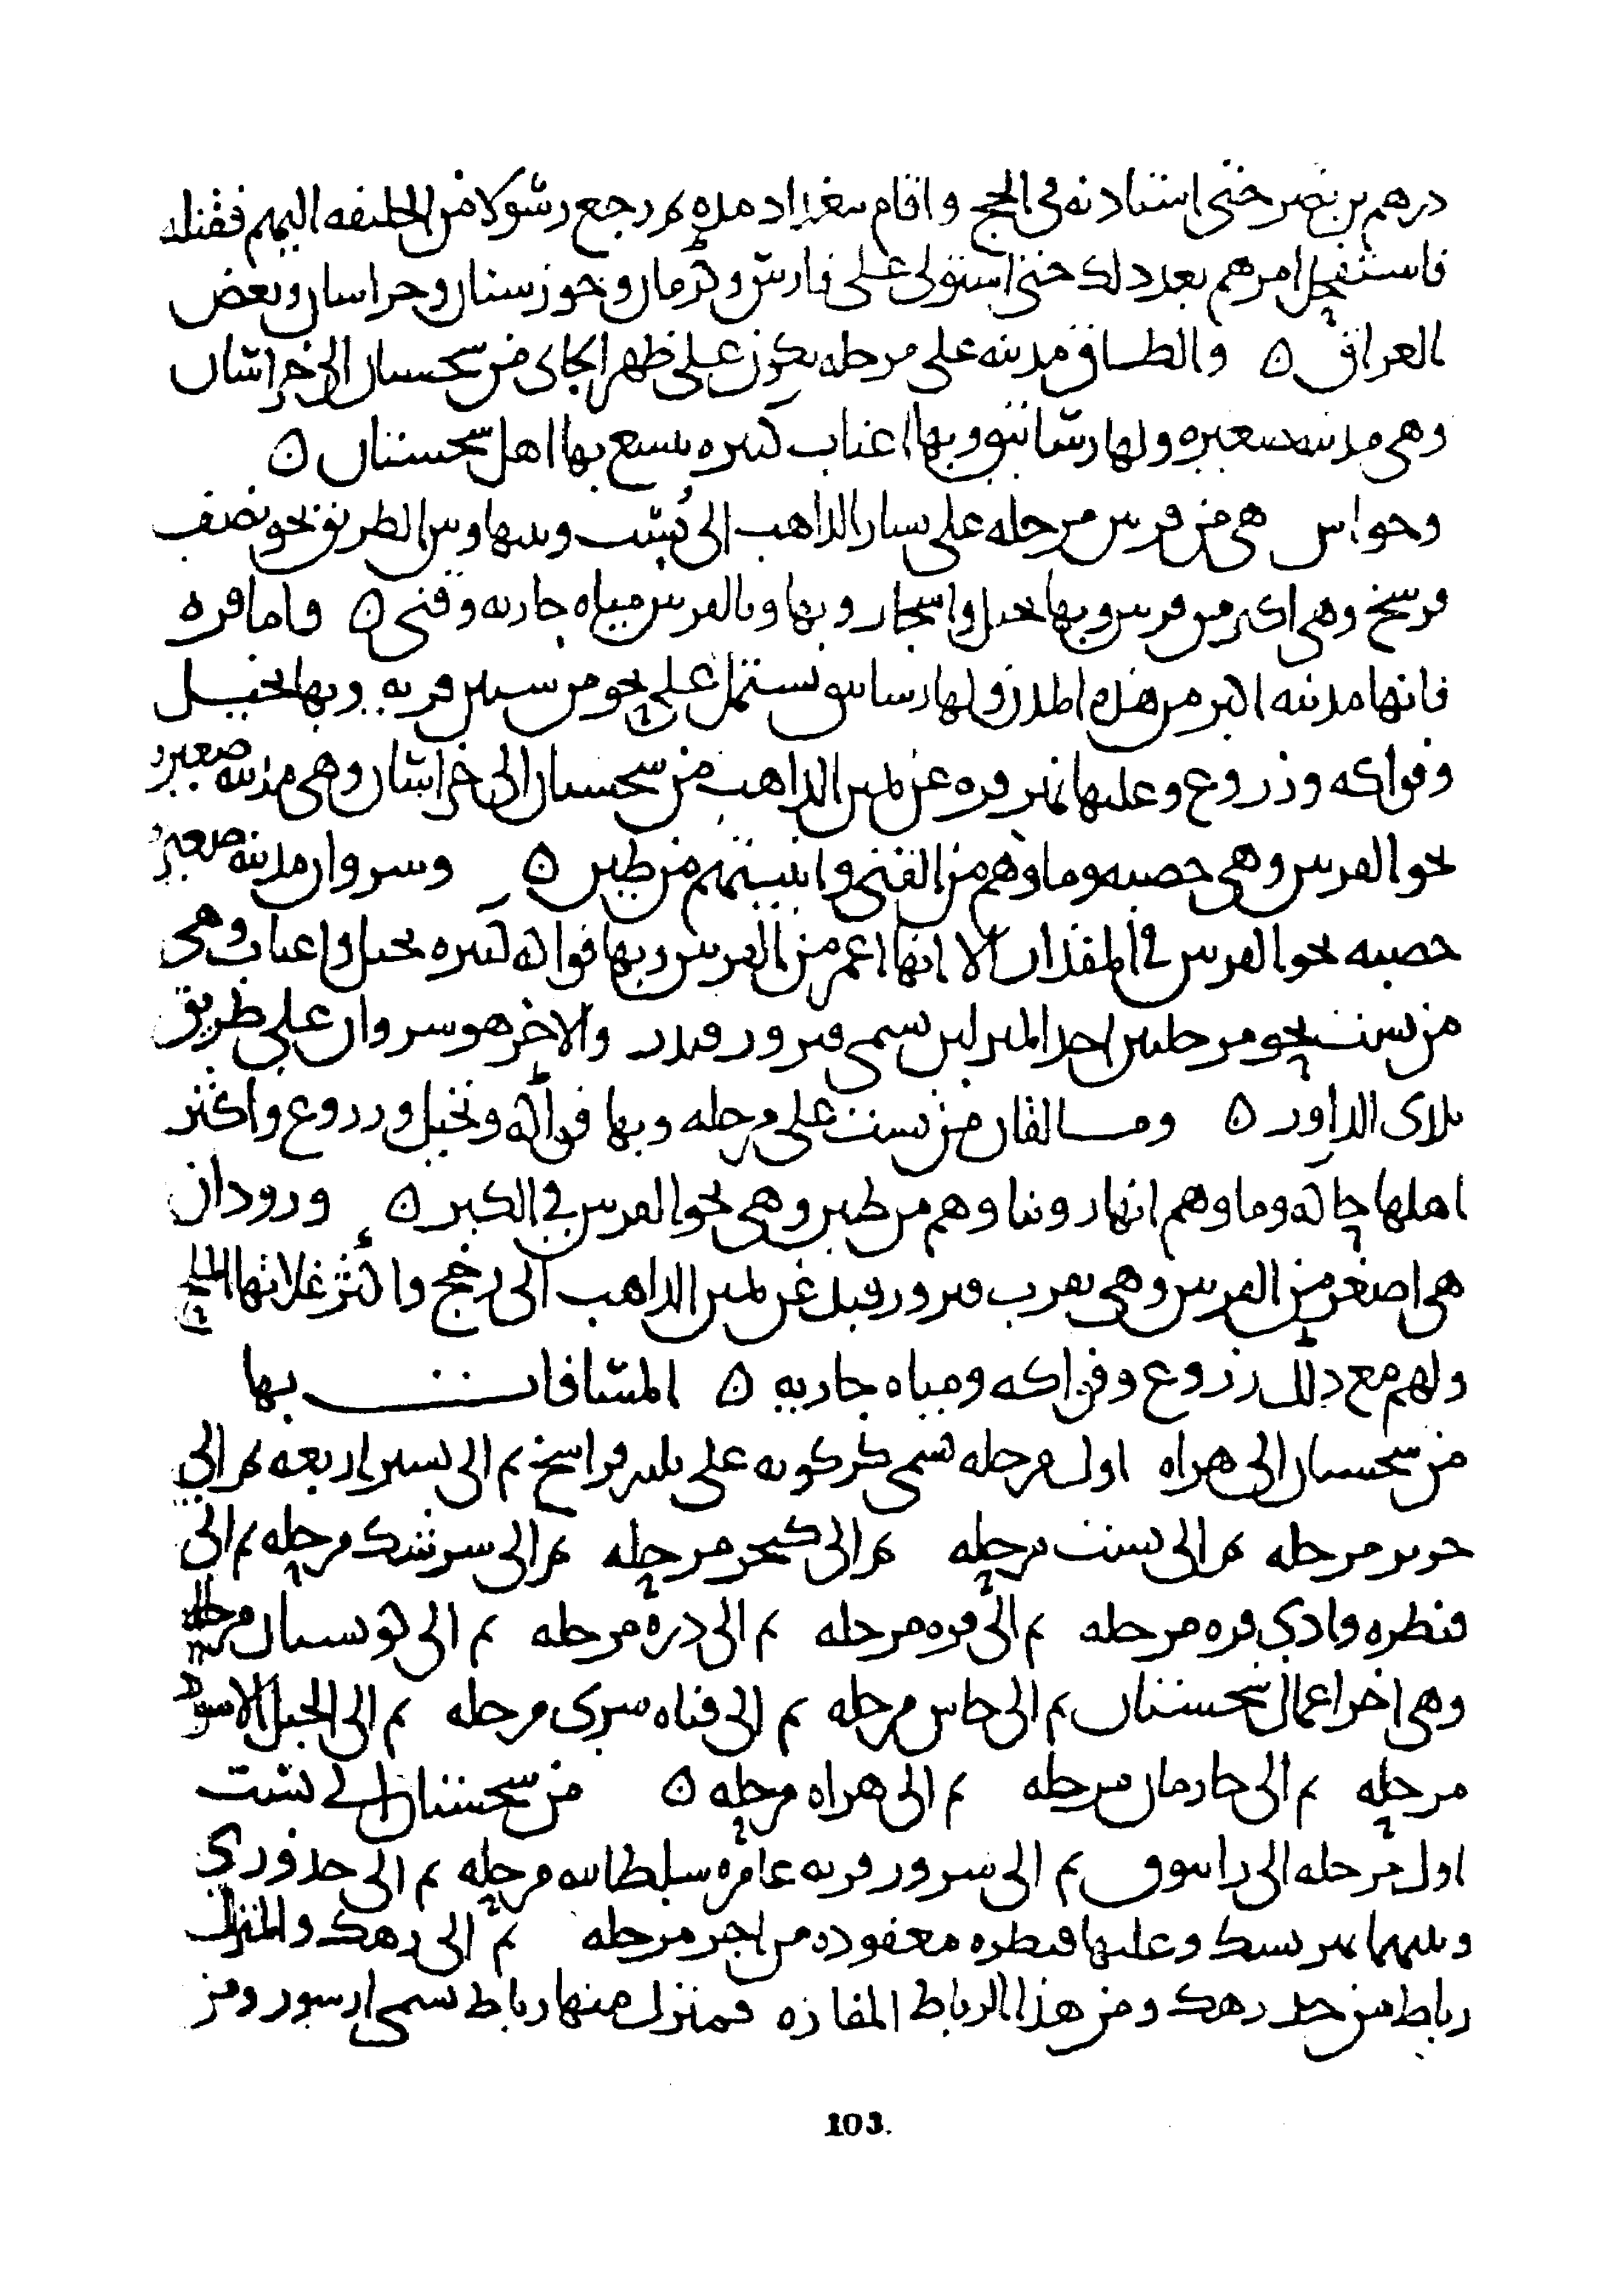 درهم بن نصر حتى استاذنه في الحج واقام ببغداد مده ثم رجع رسولا من الخليفه اليهم فقتله
فاستفحل امرهم بعد ذلك حتى استولى على فارس وكرمان وخوزستان وخراسان وبعض
العراق ۝ والطاق مدينه على مرحله تكون على ظهر الجاي من سجستان الى خراسان
وهي مدينه صغيره ولها رساتيق وبها اعناب كثيره يتسع بها اهل سجستان ۝
وحواس هي من قرنين مرحله على يسار الذاهب الى بست وبينها وبين الطريق نحو نصف
فرسخ وهي اكبر من قرنين وبها نخيل واشجار وبها وبالقرنين مياه جاريه وقني ۝ فاما فره
فانها مدينه اكبر من هذه المدن ولها رساتيق تشتمل على نحو من ستين قريه وبها نخيل
وفواكه وزروع وعليها نهر فره عن يمين الذاهب من سجستان الى خراسان وهي مدينه صغيره
نحو القرنين وهي خصبه وماوهم من القنى وابنيتهم من طين ۝ وسروان مدينه صغيره
خصبه نحو القرنين في المقدار الا انها اعمر من القرنين وبها فواكه كثيره نخيل واعناب وهي
من بست نحو مرحلتين احد المنزلين يسمى فيروزقند والاخر هو سروان على طريق
بلدي الداور ۝ و القان من بست على مرحله وبها فواكه ونخيل وزروع واكثر
اهلها حاكه وماوهم انهار وبناوهم من طين وهي نحو القرنين في الكبر ۝ وروذان
هي اصغر من القرنين وهي بقرب فيروزقند عن يمين الذاهب الى رخج واكثر غلاتها الملح
ولهم مع ذلك زروع وفواكه ومياه جاريه ۝ المسافات بها
من سجستان الى هراه اول مرحله تسمى كركويه على ثلثه فراسخ ثم الى بشير اربعه ثم الى
جوين مرحله ثم الى بست مرحله ثم الى كنجر مرحله ثم الى سرشك مرحله ثم الى
قنطره وادي فره مرحله ثم الى فره مرحله ثم الى دره مرحله ثم الى كوستان مرحله
وهي اخر اعمال سجستان ثم الى جاس مرحله ثم الى قناه سري مرحله ثم الى الجبل الاسود
مرحله ثم الى جارمان مرحله ثم الى هراه مرحله ۝ من سجستان الى بست
اول مرحله الى زانبوق ثم الى سرور قريه عامره سلطانيه مرحله ثم الى حذوري
وبينهما نهر نيشك وعليها قنطره معقوده من اجر مرحله ثم الى دهك والمنزل
رباط من حد دهك ومن هذا الرباط المفازه فمنزل منها رباط يسمى ابشور ومن
103.